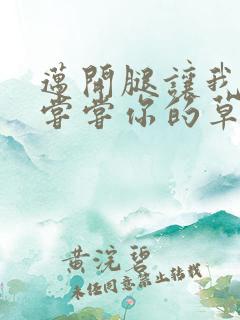 邁開腿讓我
嘗嘗你的草
黄浣碧
未经同意禁止转载